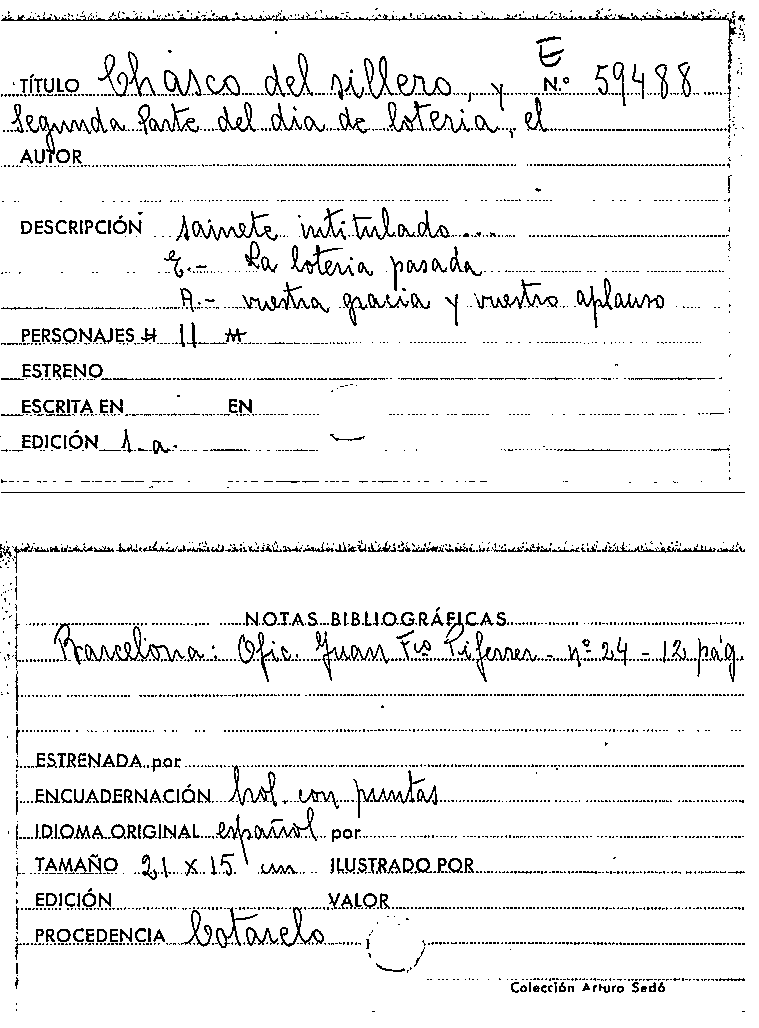 E
TÍTULO Chasco del sillero, y N.º 59488
Segunda Parte del dia de loteria, el
AUTOR
DESCRIPCIÓN sainete intitulado...
E.- La loteria pasada
A.- vuestra gracia y vuestro aplauso
PERSONAJES H 11 M
ESTRENO
ESCRITA EN EN
EDICIÓN s.a.
NOTAS BIBLIOGRÁFICAS
Barcelona: Ofic. Juan Fco Piferrer - nº 24 - 12 pág.
ESTRENADA por
ENCUADERNACIÓN hol. con puntas
IDIOMA ORIGINAL español por
TAMAÑO 21 x 15 cm ILUSTRADO POR
EDICIÓN VALOR
PROCEDENCIA Cotarelo
Colección Arturo Sedó